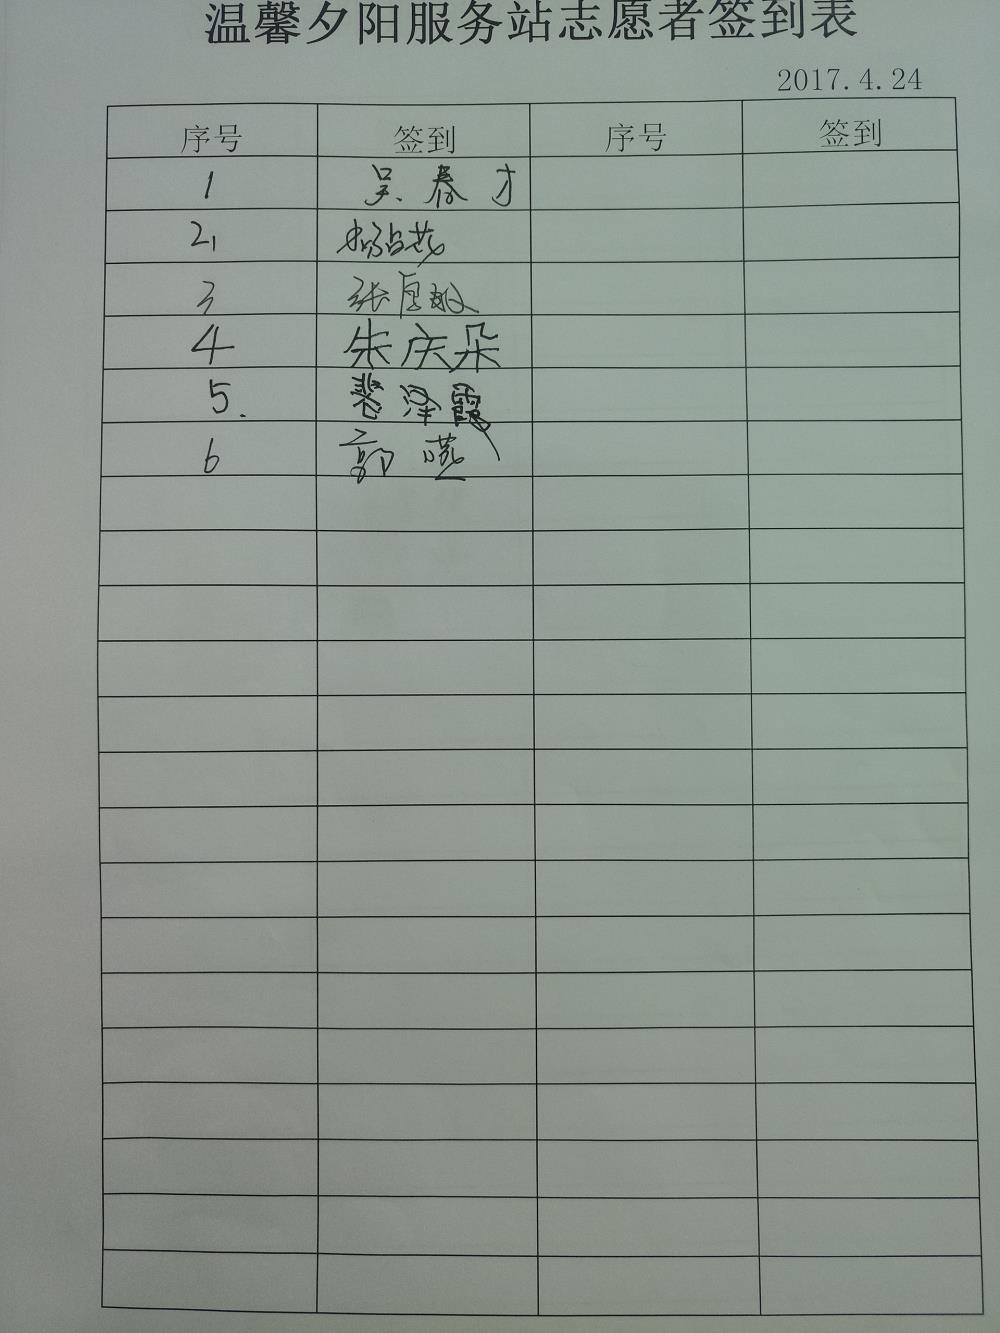 温馨夕阳服务站志愿者签到表
2017.4.24
序号 签到 序号 签到
1 吴春才
2
3 张厚敏
4 朱庆朵
5. 裴泽霞
6 郭燕